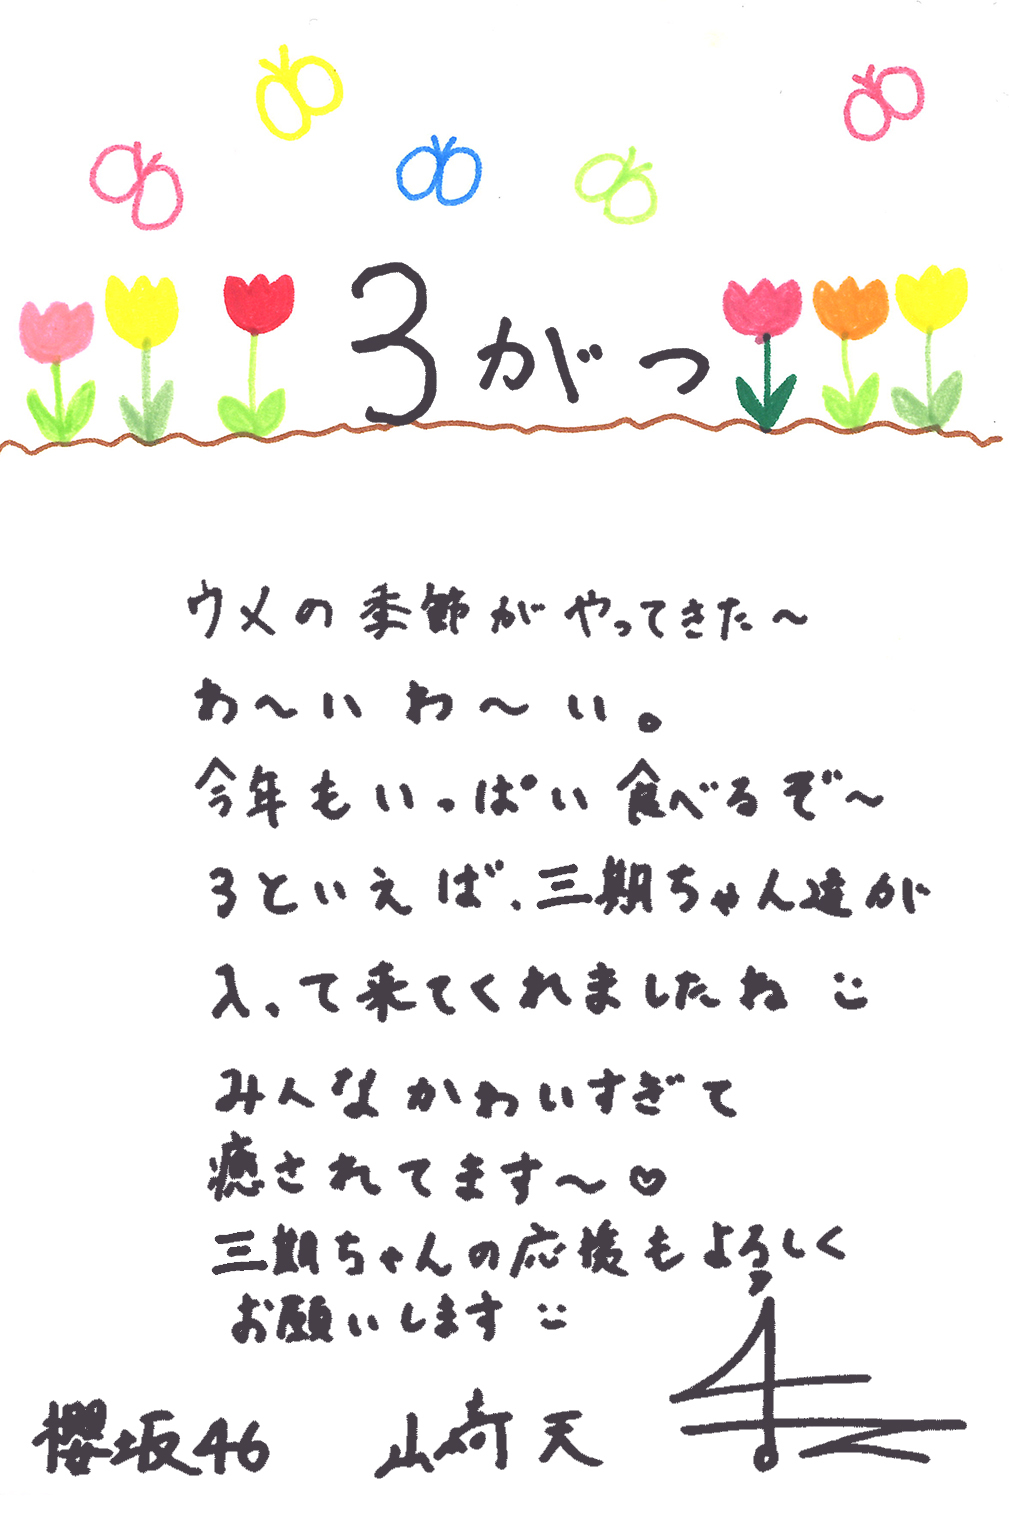 3がつ
ウメの季節がやってきた〜
わ〜いわ〜い。
今年もいっぱい食べるぞ〜
3といえば、三期ちゃん達が
入って来てくれましたね
みんなかわいすぎて
癒されてます〜♡
三期ちゃんの応援もよろしく
お願いします
櫻坂46 山﨑天